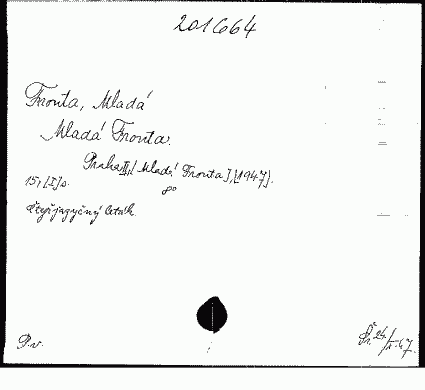 201664
Fronta, Mladá
Mladá Fronta.
Praha II, [Mladá Fronta], [1947].
15, [I] s. 8°
Čtyřjazyčný leták.
P.v.
24/